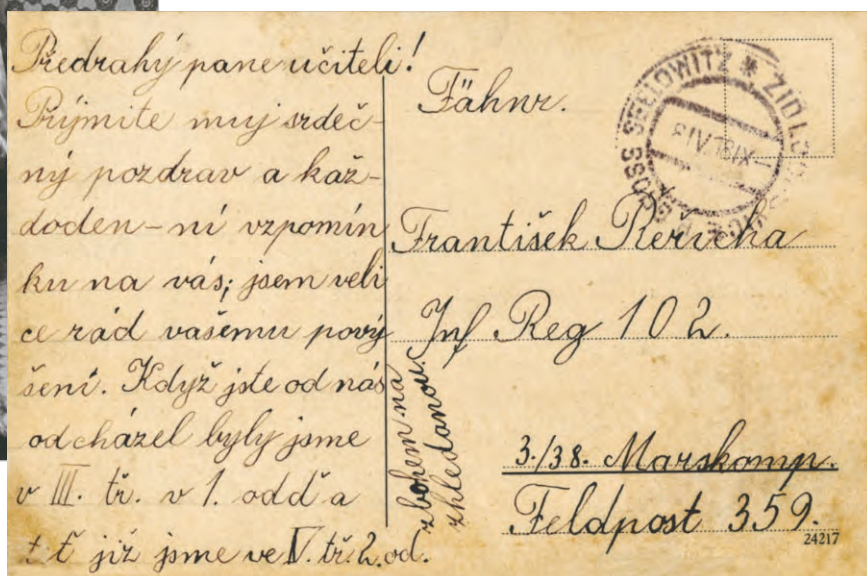 Předrahý pane učiteli!
Prijmite muj srdeč-
ný pozdrav a kaž-
doden-ní vzpomín
ku na vás; jsem veli
ce rád vašemu pový
šení. Když jste od nás
odcházel byly jsme
v III. tř. v 1. odd a
již jsme ve V. tř. 2. od.
zbohem na
shledanou.
Fähnr.
František
Inf Reg 102.
3./38. Marskomp.
Feldpost 359.
24217